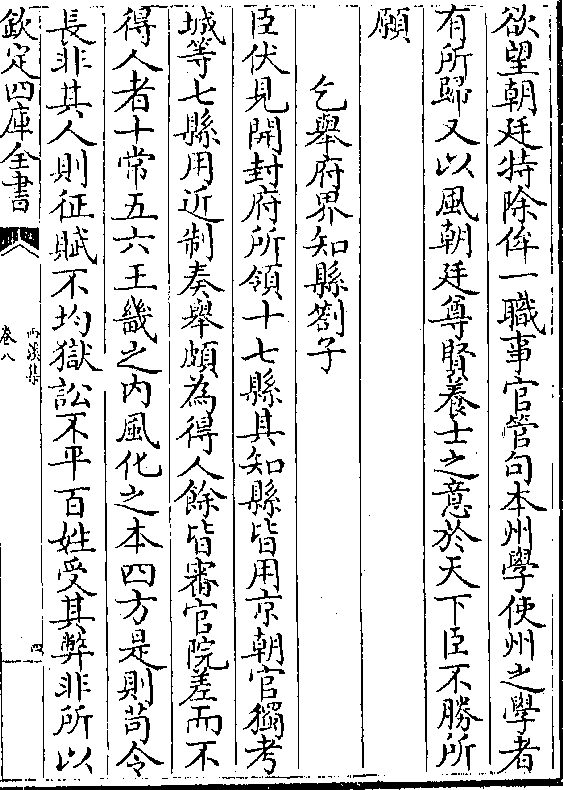 欲望朝廷特除侔一職事官管句本州學使州之學者
有所歸又以風朝廷尊賢養士之意於天下臣不勝所
願
乞舉府界知縣劄子
臣伏見開封府所領十七縣其知縣皆用京朝官獨考
城等七縣用近制奏舉頗為得人餘皆審官院差而不
得人者十常五六王畿之内風化之本四方是則茍令
長非其人則征賦不均獄訟不平百姓受其弊非所以
欽定四庫全書
西溪集
卷八
四